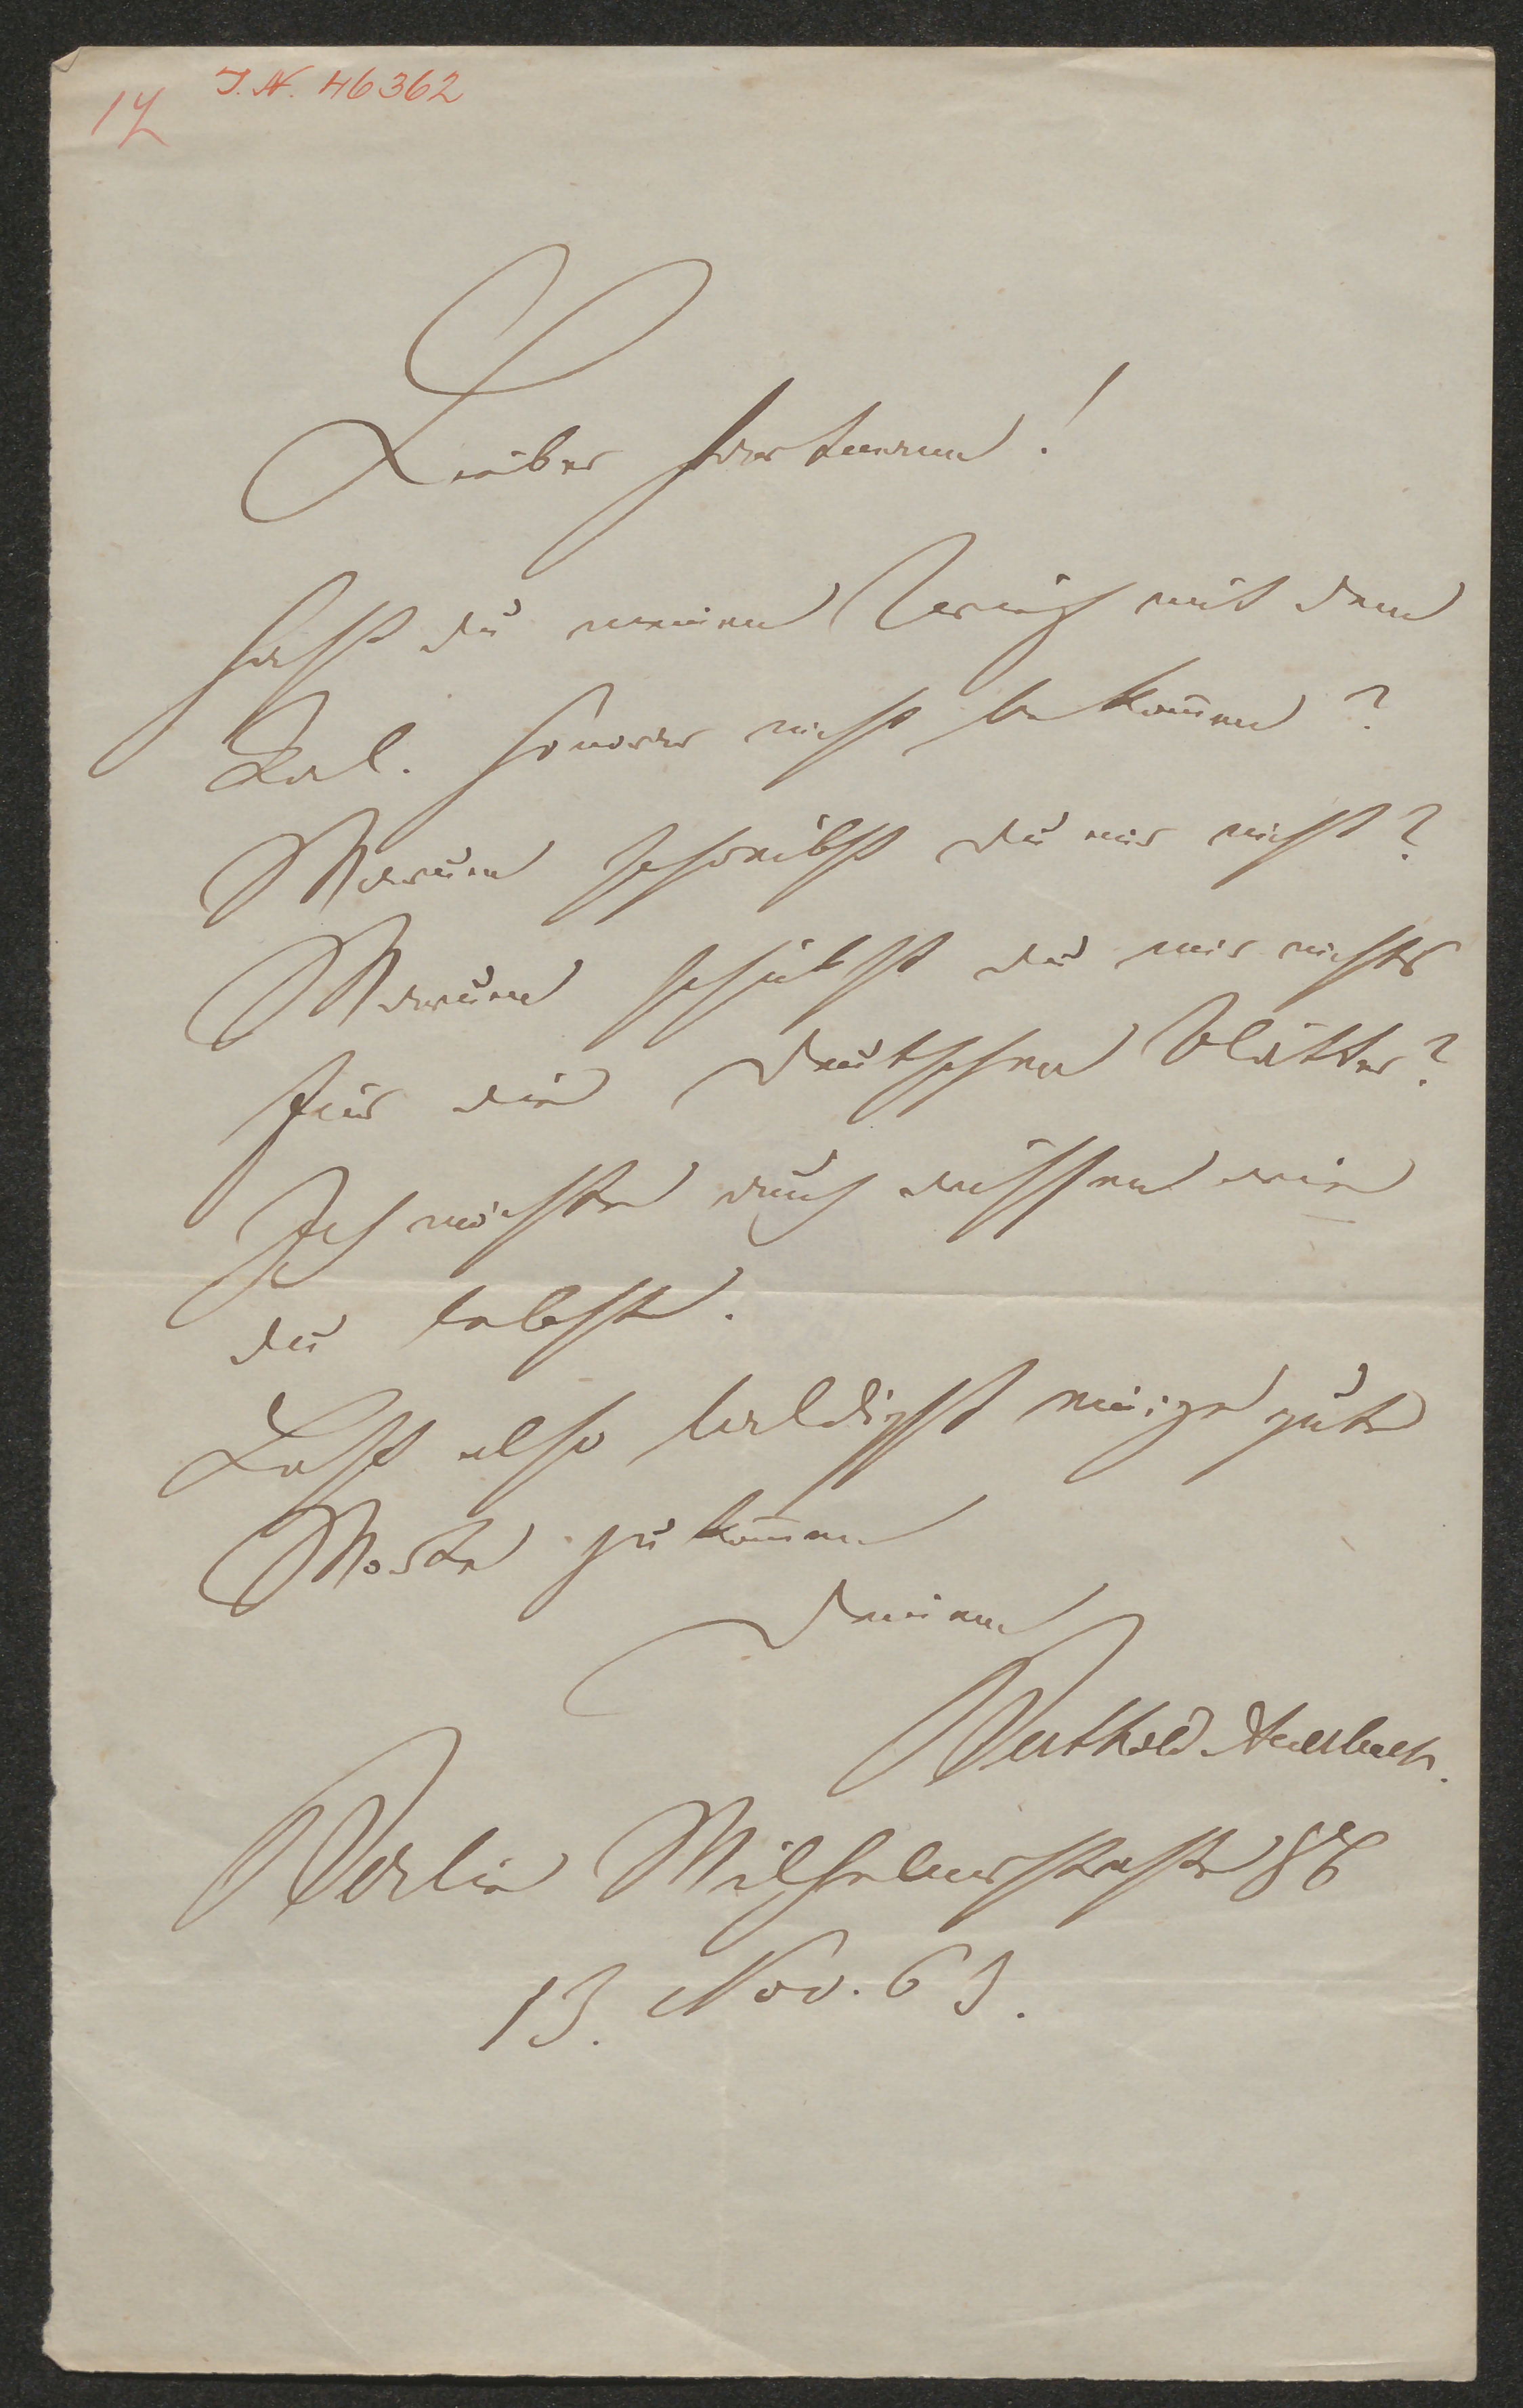 17
I. N. 46362
Lieber Hartmann!
Hast du meinen Brief mit dem
Kal. Honorar nicht bekom̄en?
Warum schreibst du mir nicht?
Warum schickst du mir nichts
für die deutschen Blätter?
Ich möchte auch wissen wie
du lebst.
Laß also baldigst einige gute
Worte zukom̄en
Deinem
Berthold Auerbach.
Berlin Wilhelmsstraße
13. Nov. 63.